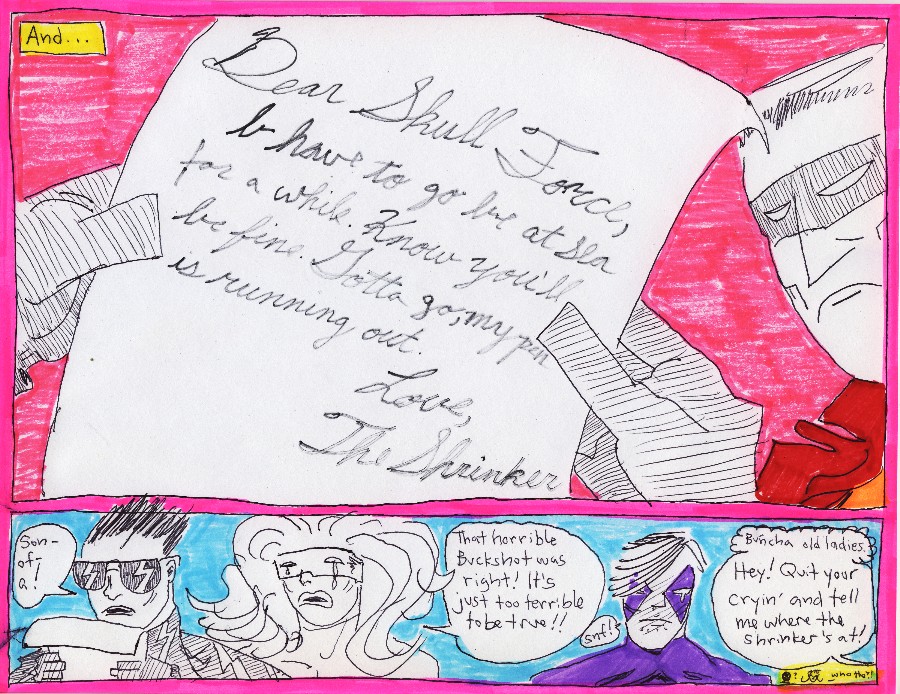 And...
Dear Skull Force,
I have to go be at sea
for a while. Know you'll
be fine. Gotta go, my pen
is running out.
Love,
The Shrinker
Son-
of-
a!
That horrible
Buckshot was
right! It's
just too terrible
to be true!!
snf!
Buncha old ladies.
Hey! Quit your
cryin' and tell
me where the
Shrinker's at!
who tha?!